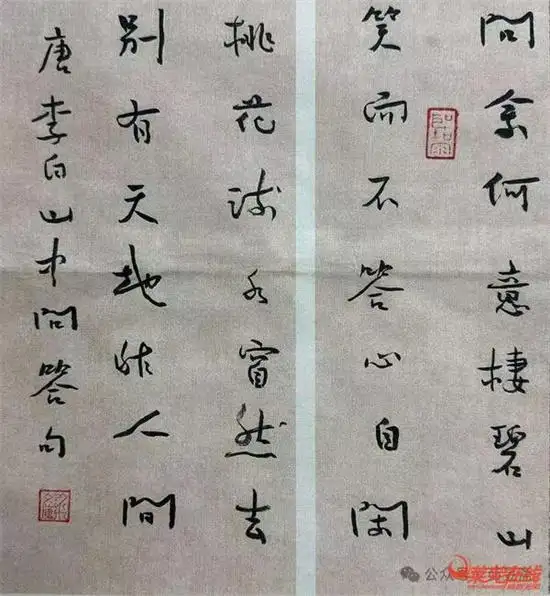 問余何意棲碧山
笑而不答心自閑
桃花流水窅然去
別有天地非人間
唐李白山中問答句
公众号
莱芜在线